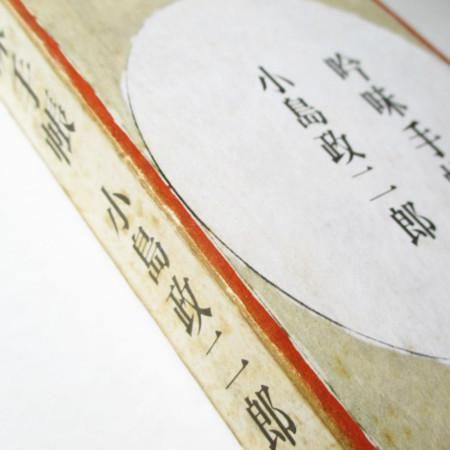 吟味手
小島政二郎
手帳
小島政二郎